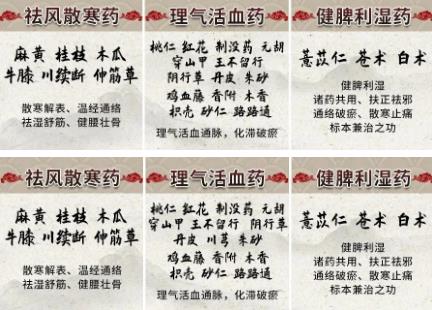 祛风散寒药
麻黄 桂枝 木瓜
牛膝 川续断 伸筋草
散寒解表、温经通络
祛湿舒筋、健腰壮骨
理气活血药
桃仁 红花 制没药 元胡
穿山甲 王不留行
阴行草 丹皮 朱砂
鸡血藤 香附 木香
枳壳 砂仁 路路通
理气活血通脉，化滞破瘀
健脾利湿药
薏苡仁 苍术 白术
健脾利湿
诸药共用、扶正祛邪
通络破瘀、散寒止痛
标本兼治之功
祛风散寒药
麻黄 桂枝 木瓜
牛膝 川续断 伸筋草
散寒解表、温经通络
祛湿舒筋、健腰壮骨
理气活血药
桃仁 红花 制没药 元胡
穿山甲 王不留行 阴行草
丹皮 川芎 朱砂
鸡血藤 香附 木香
枳壳 砂仁 路路通
理气活血通脉，化滞破瘀
健脾利湿药
薏苡仁 苍术 白术
健脾利湿
诸药共用、扶正祛邪
通络破瘀、散寒止痛
标本兼治之功